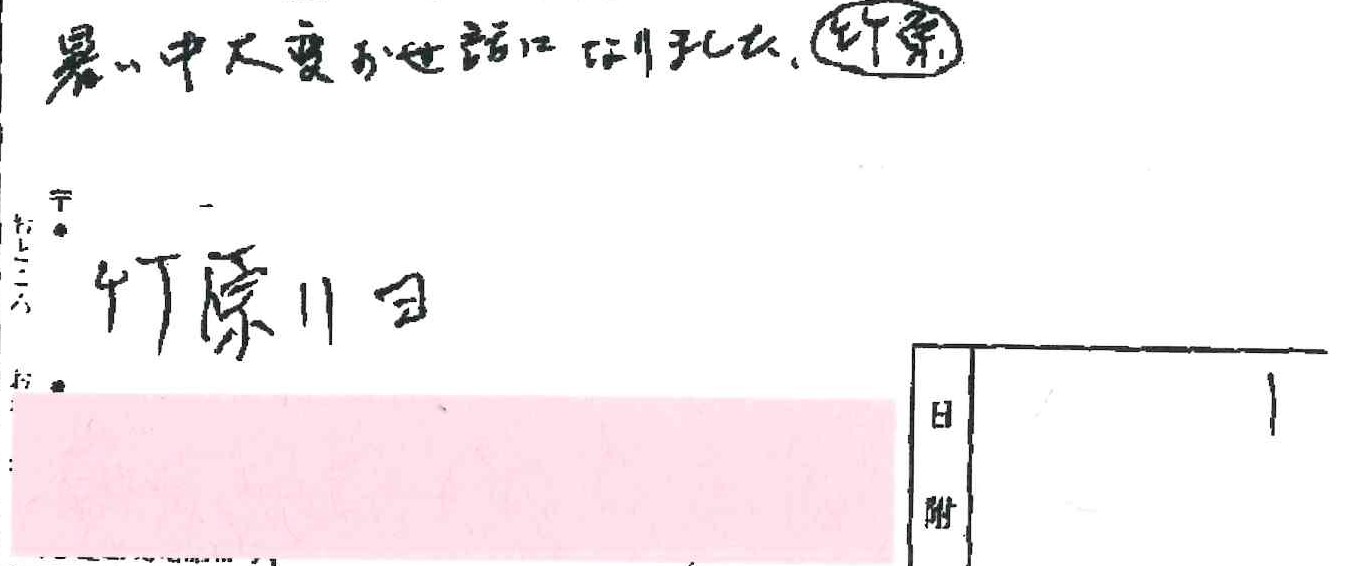 暑い中大変お世話になりました。竹原
〒
おところ
竹原
日附